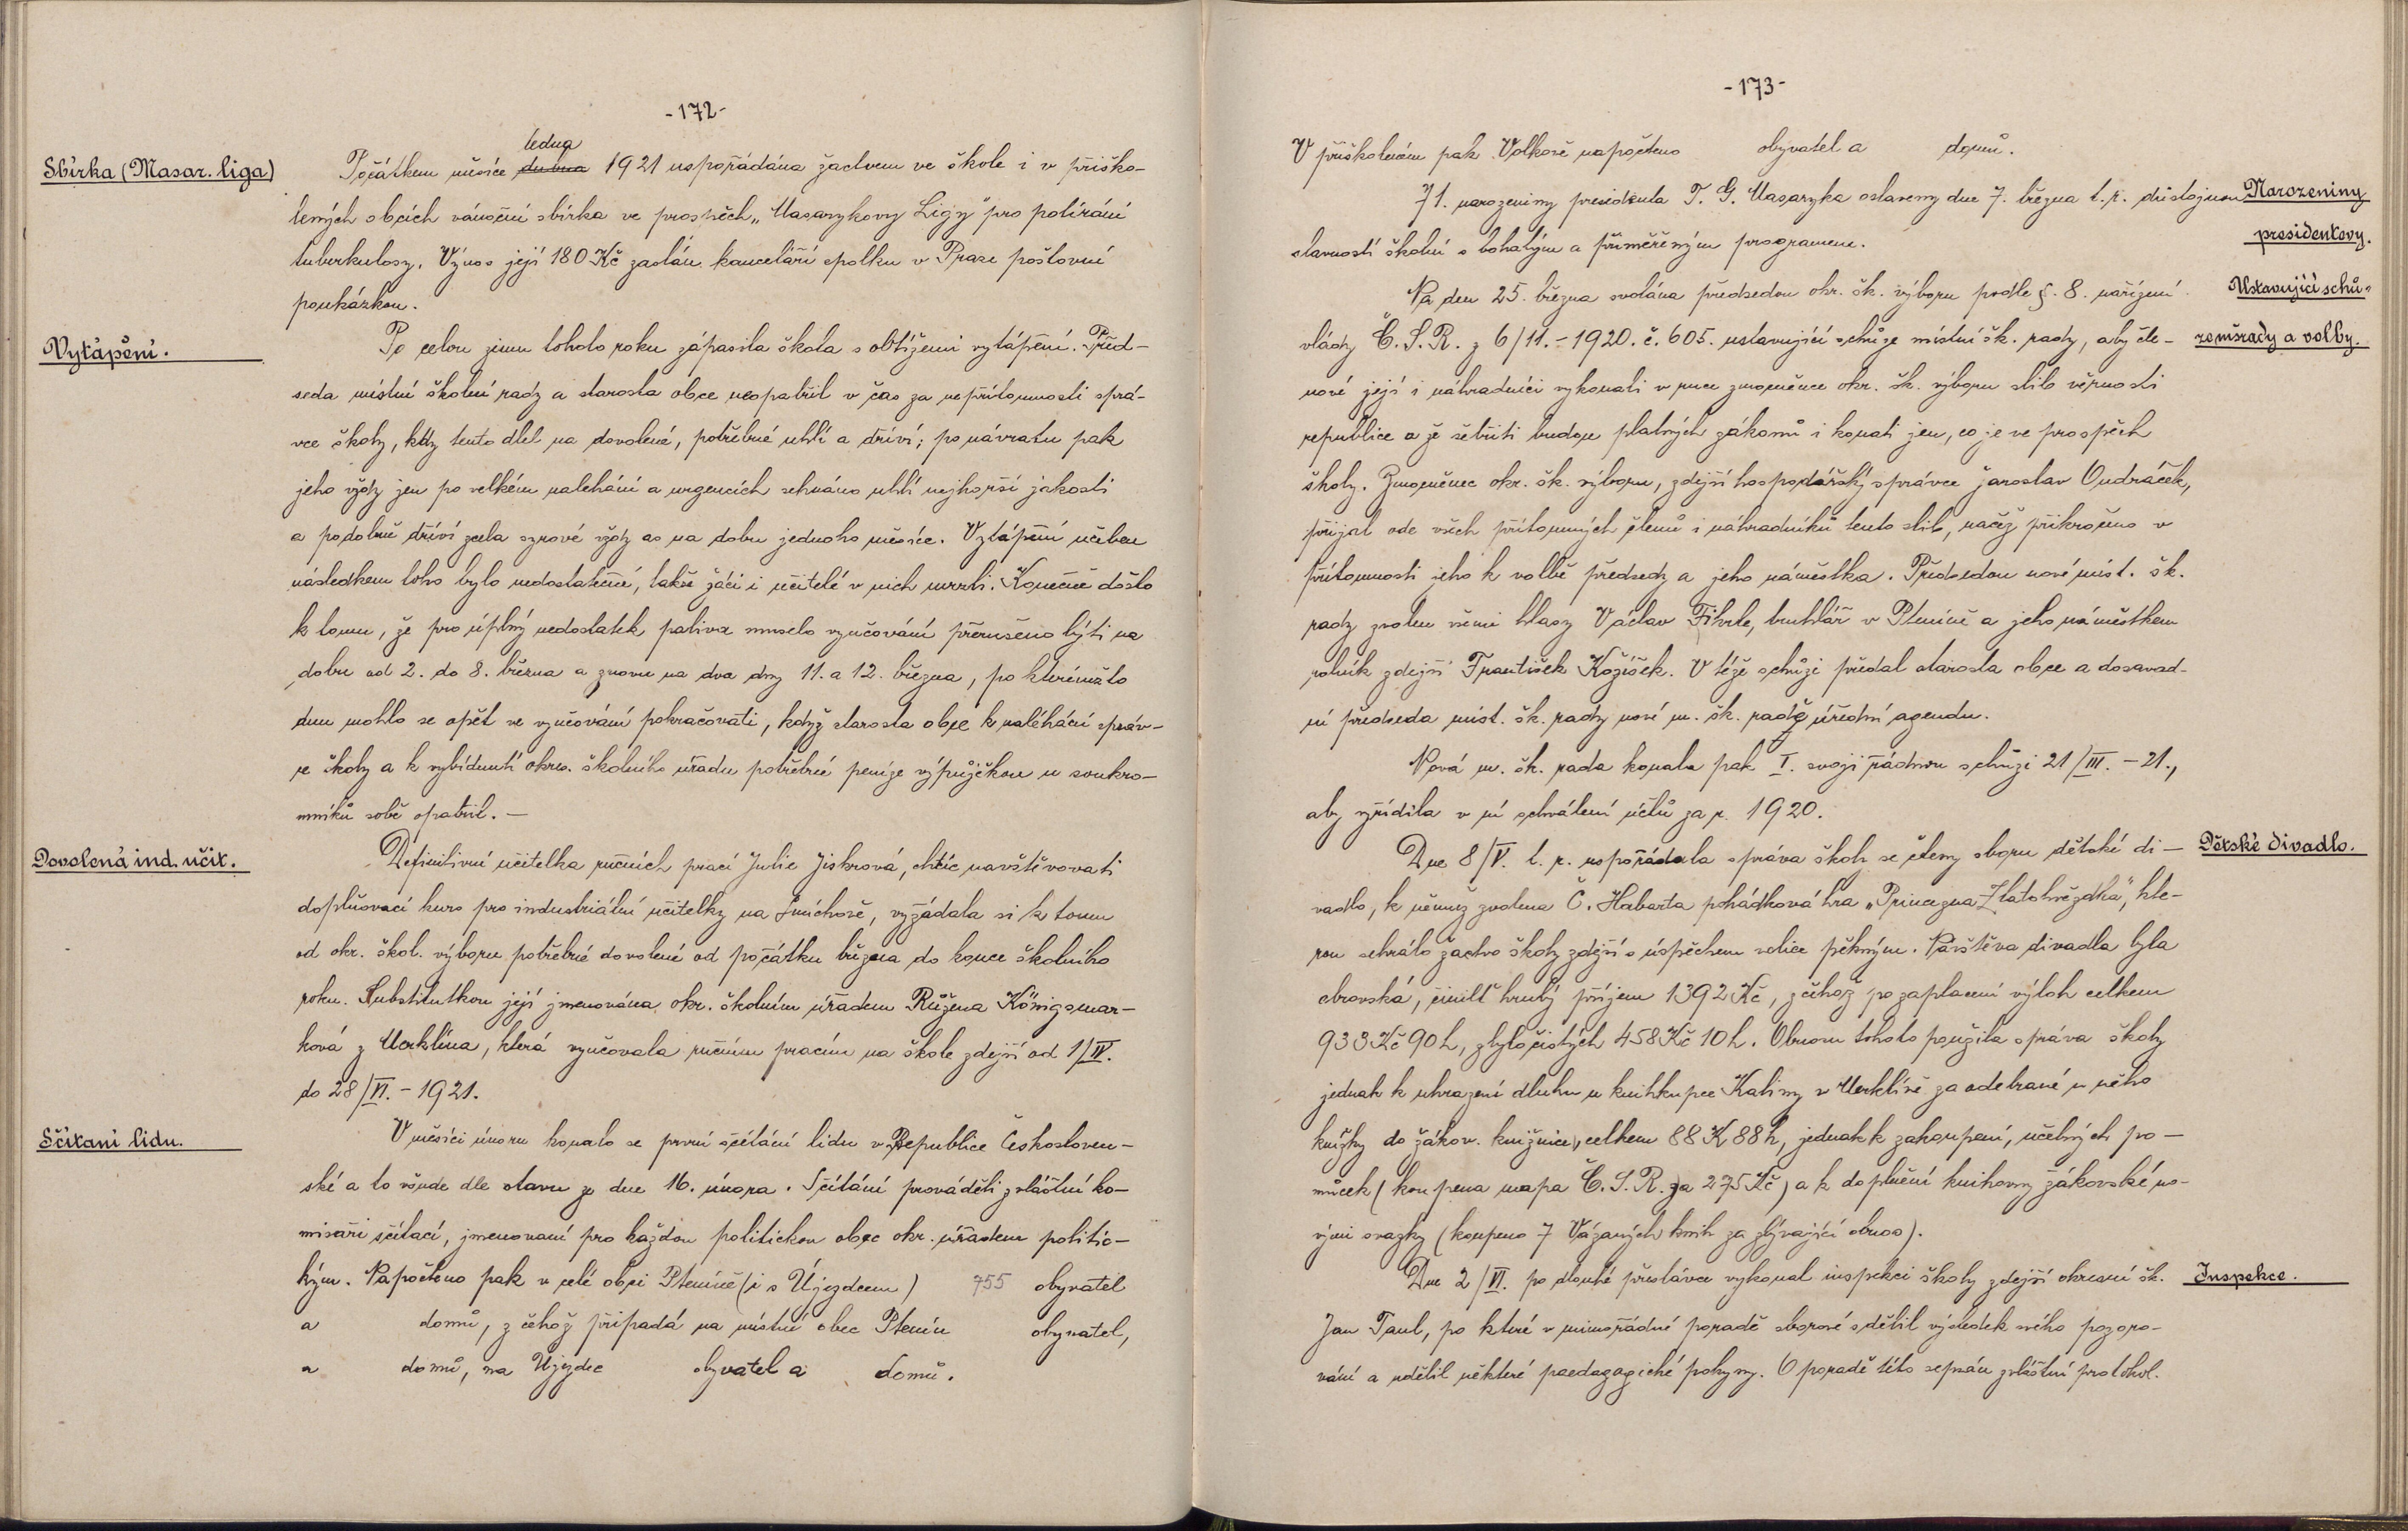 -172-
Sbírka (Masar. liga)
ledna
Počátkem měsíce dubna 1921 uspořádána žactvem ve škole i v přiško-
lených obcích vánoční sbírka ve prospěch „Masarykovy Ligy" pro potírání
tuberkulosy. Výnos její 180 Kč zaslán kanceláři spolku v Praze poštovní
poukázkou.
Vytápění.
Po celou zimu tohoto roku zápasila škola s obtížemi vytápění. Před-
seda místní školní rady a starosta obce neopatřil v čas za nepřítomnosti sprá-
vce školy, kdy tento dlel na dovolené, potřebné uhlí a dříví; po návratu pak
jeho vždy jen po velkém naléhání a urgencích sehnáno uhlí nejhorší jakosti
a podobně dříví zcela syrové vždy as na dobu jednoho měsíce. Vytápění učeben
následkem toho bylo nedostatečné, takže žáci i učitelé v nich mrzli. Konečně došlo
k tomu, že pro úplný nedostatek paliva muselo vyučování přerušeno býti na
dobu od 2. do 8. března a znovu na dva dny 11. a 12. března, po kterémžto
dnu mohlo se opět ve vyučování pokračovati, když starosta obce k naléhání správ-
ce školy a k vybídnutí okres. školního úřadu potřebné peníze výpůjčkou u soukro-
mníků sobě opatřil. —
Dovolená ind. učit.
Definitivní učitelka ručních prací Julie Jiskrová, chtíc navštěvovati
doplňovací kurs pro industriální učitelky na Smíchově, vyžádala si k tomu
od okr. škol. výboru potřebné dovolené od počátku března do konce školního
roku. Substitutkou její jmenována okr. školním úřadem Růžena Königsmar-
ková z Merklína, která vyučovala ručním pracím na škole zdejší od 1/IV.
do 28/VI. - 1921.
Sčítaní lidu.
V měsíci únoru konalo se první sčítání lidu v Republice Českosloven-
ské a to všude dle stavu ze dne 16. února. Sčítání prováděli zvláštní ko-
misaři sčítací, jmenovaní pro každou politickou obec okr. úřadem politic-
kým. Napočteno pak v celé obci Pteníně (i s Újezdcem) 755 obyvatel
a domů, z čehož připadá na místní obec Ptenín obyvatel,
a domů, na Újezdec obyvatel a domů.
-173-
V přiškoleném pak Volkově napočteno obyvatel a domů.
71. narozeniny presidenta T. G. Masaryka oslaveny dne 7. března t. r. důstojnou
slavností školní s bohatým a přiměřeným programem.
Narozeniny
presidentovy.
Na den 25. března svolána předsedou okr. šk. výboru podle §. 8. nařízení
vlády Č. S. R. z 6/11. - 1920. č. 605. ustavující schůze místní šk. rady, aby čle-
nové její i náhradníci vykonali v ruce zmocněnce okr. šk. výboru slib věrnosti
republice a že šetřiti budou platných zákonů i konati jen, co je ve prospěch
školy. Zmocněnec okr. šk. výboru, zdejší hospodářský správce Jaroslav Ondráček,
přijal ode všech přítomných členů i náhradníků tento slib, načež přikročeno v
přítomnosti jeho k volbě předsedy a jeho náměstka. Předsedou nové míst. šk.
rady zvolen všemi hlasy Václav Fikrle, truhlář v Pteníně a jeho náměstkem
rolník zdejší František Kožíšek. V téže schůzi předal starosta obce a dosavad-
ní předseda míst. šk. rady nové m. šk. radě úřední agendu.
Ustavující schů-
ze mšrady a volby.
Nová m. šk. rada konala pak I. svoji řádnou schůzi 21/III. - 21.,
aby vyřídila v ní schválení účtů za r. 1920.
Dne 8/V. t. r. uspořádala správa školy se členy sboru dětské di-
vadlo, k němuž zvolena Č. Habarta pohádková hra „Princezna Zlatohvězdka", kte-
rou sehrálo žactvo školy zdejší s úspěchem velice pěkným. Návštěva divadla byla
obrovská, činilť hrubý příjem 1392 Kč, z čehož po zaplacení výloh celkem
933 Kč 90 h, zbylo čistých 458 Kč 10 h. Obnosu tohoto použila správa školy
jednak k uhrazení dluhu u knihkupce Kaliny v Merklíně za odebrané u něho
knížky do žákov. knižnice, celkem 88 K 88 h, jednak k zakoupení, učebných po-
můcek (koupena mapa Č. S. R. za 275 Kč) a k doplnění knihovny žákovské no-
vými svazky (koupeno 7 Vázaných knih za zbývající obnos).
Dětské divadlo.
Dne 2/VI. po dlouhé přestávce vykonal inspekci školy zdejší okresní šk.
Jan Taul, po které v mimořádné poradě sborové sdělil výsledek svého pozoro-
vání a udělil některé paedagogické pokyny. O poradě této sepsán zvláštní protokol.
Inspekce.